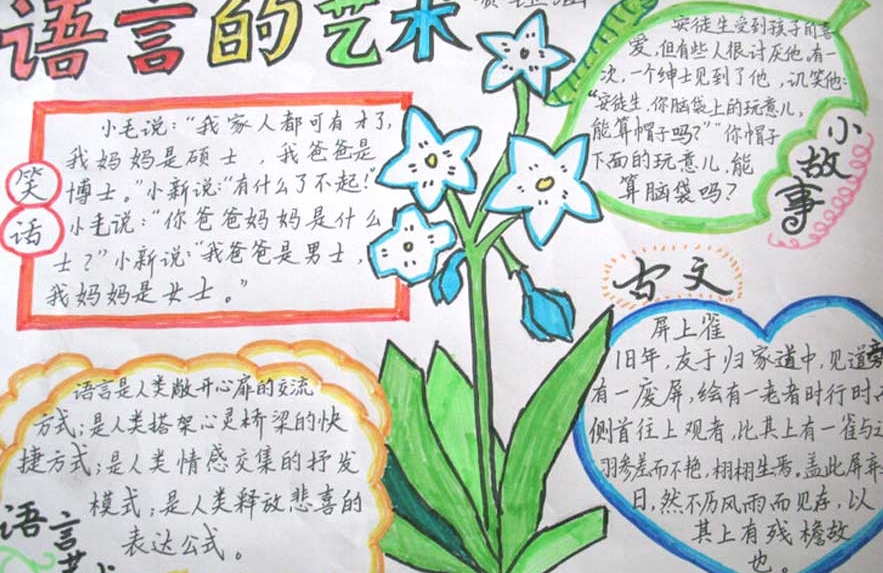 语言的艺术
笑话
小毛说:“我家人都可有才了,
我妈妈是硕士,我爸爸是
博士。”小新说:“有什么了不起!”
小毛说:“你爸爸妈妈是什么
士?”小新说:“我爸爸是男士,
我妈妈是女士。”
安徒生受到孩子的喜
爱,但有些人很讨厌他。有一
次,一个绅士见到了他,讥笑他:
“安徒生,你脑袋上的玩意儿,
能算帽子吗?”“你帽子
下面的玩意儿,能
算脑袋吗?
小故事
古文
屏上雀
旧年,友于归家道中,见道旁
有一废屏,绘有一老者时行时
侧首往上观者,比其上有一雀与
羽参差而不艳,栩栩生焉。盖此屏弃
日,然不历风雨而见存,以
其上有残檐故
也。
语言是人类敞开心扉的交流
方式;是人类搭架心灵桥梁的快
捷方式;是人类情感交集的抒发
模式;是人类释放悲喜的
表达公式。
语言艺